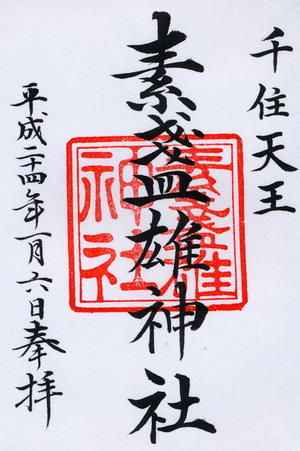 千住天王
素盞雄神社
平成二十四年一月六日奉拝
素盞雄神社